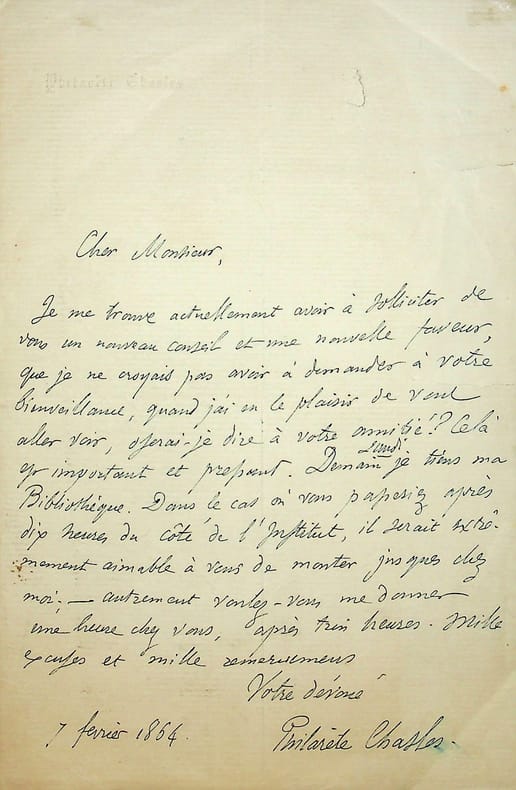 Philarète Chasles
Cher Monsieur,
Je me trouve actuellement avoir à solliciter de
vous un nouveau conseil et une nouvelle faveur,
que je ne croyais pas avoir à demander à votre
bienveillance, quand j'ai eu le plaisir de vous
aller voir, oserai-je dire à votre amitié? Celà
est important et pressant. Demain Lundi je tiens ma
Bibliothèque. Dans le cas où vous passeriez après
dix heures du côté de l'Institut, il serait extrê-
mement aimable à vous de monter jusques chez
moi; — autrement voulez-vous me donner
une heure chez vous, après trois heures. Mille
excuses et mille remerciemens
Votre dévoué
7 fevrier 1864.
Philarète Chasles.